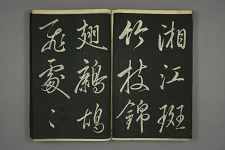 湘江斑
竹枝錦
翅鷓鴣
飛處〻